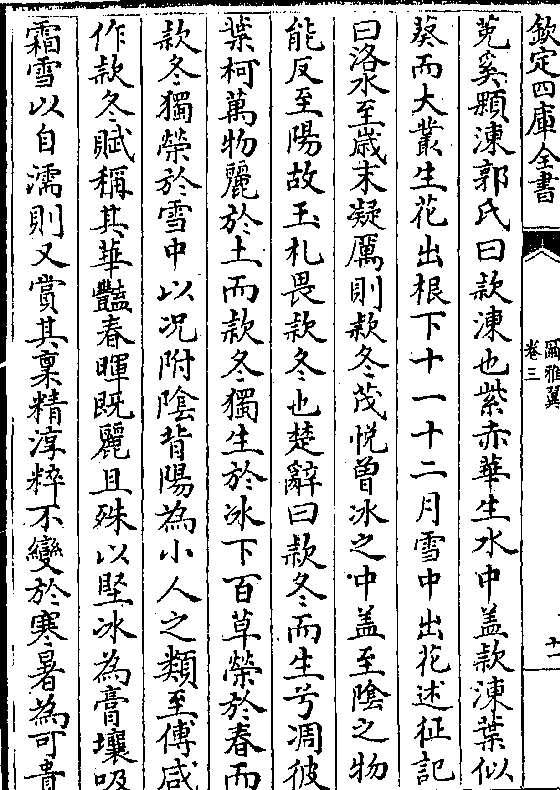 欽定四庫全書
爾雅翼
卷三
十
菟奚顆涷郭氏曰款涷也紫赤華生水中盖款涷葉似
葵而大叢生花出根下十一十二月雪中出花述征記
曰洛水至歳末凝厲則款冬茂悅曾冰之中盖至隂之物
能反至陽故玉札畏款冬也楚辭曰款冬而生兮凋彼
葉柯萬物麗於土而款冬獨生於冰下百草榮於春而
款冬獨榮於雪中以况附隂背陽為小人之類至傅咸
作款冬賦稱其華豔春暉既麗且殊以堅冰為膏壤吸
霜雪以自濡則又賞其稟精淳粹不變於寒暑為可貴